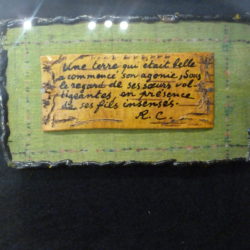 Une terre qui était belle
a commencé son agonie, sous
le regard de ses sœurs vol-
tigeantes, en présence
de ses fils insensés.
R. C.